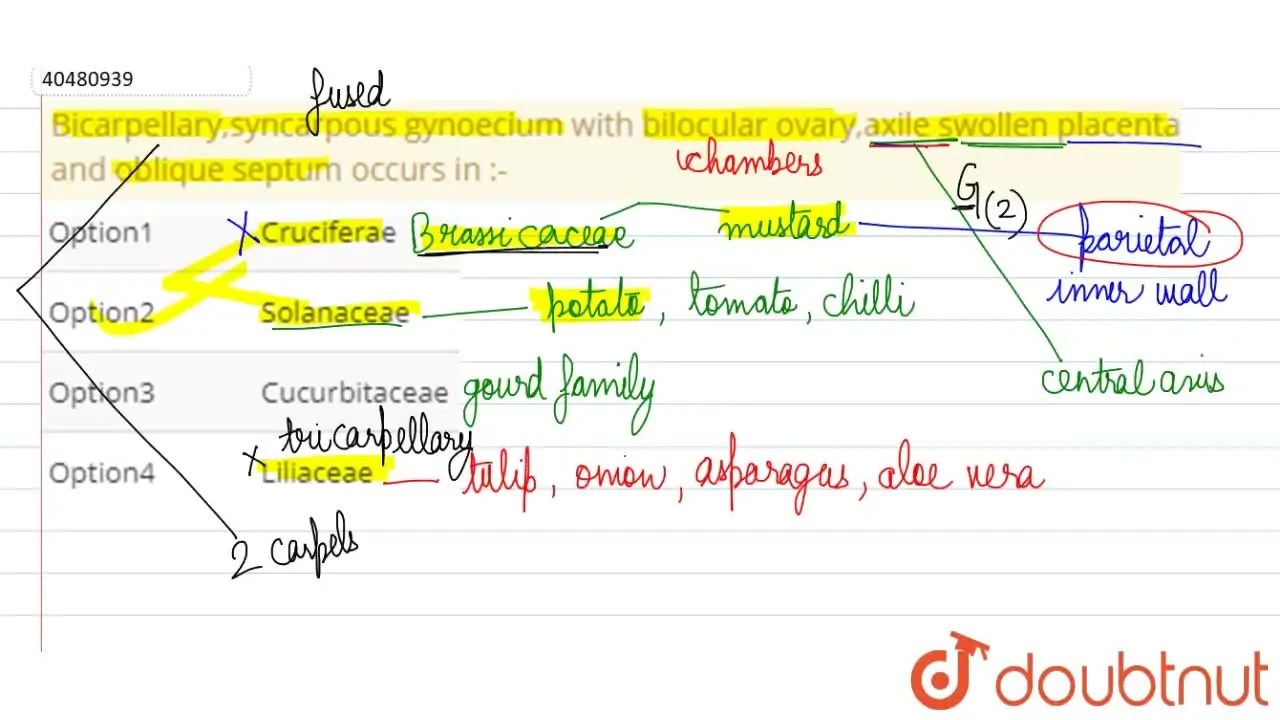 40480939
fused
Bicarpellary,syncarpous gynoecium with bilocular ovary,axile swollen placenta
and oblique septum occurs in :-
chambers
G(2)
Option1 x Cruciferae Brassicaceae mustard parietal
inner wall
Option2 Solanaceae potato, tomato, chilli
Option3 Cucurbitaceae gourd family central axis
tricarpellary
Option4 x Liliaceae tulip, onion, asparagus, aloe vera
2 carpels
doubtnut